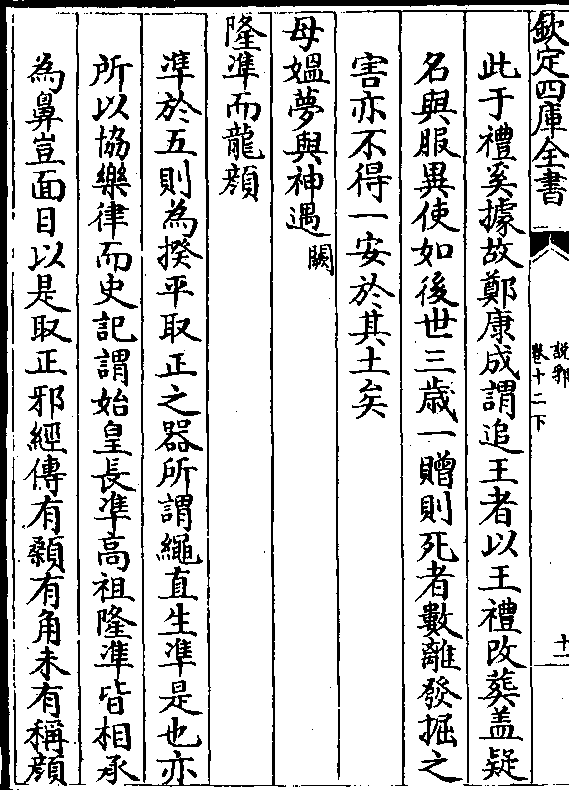 欽定四庫全書
說郛
卷十二下
十一
此于禮奚據故鄭康成謂追王者以王禮改葬盖疑
名與服異使如後世三歲一贈則死者數離發掘之
害亦不得一安於其土矣
母媼夢與神遇闕
隆凖而龍顔
凖於五則為揆平取正之器所謂繩直生凖是也亦
所以協樂律而史記謂始皇長凖高祖隆凖皆相承
為鼻豈面目以是取正邪經傳有顙有角未有稱顔